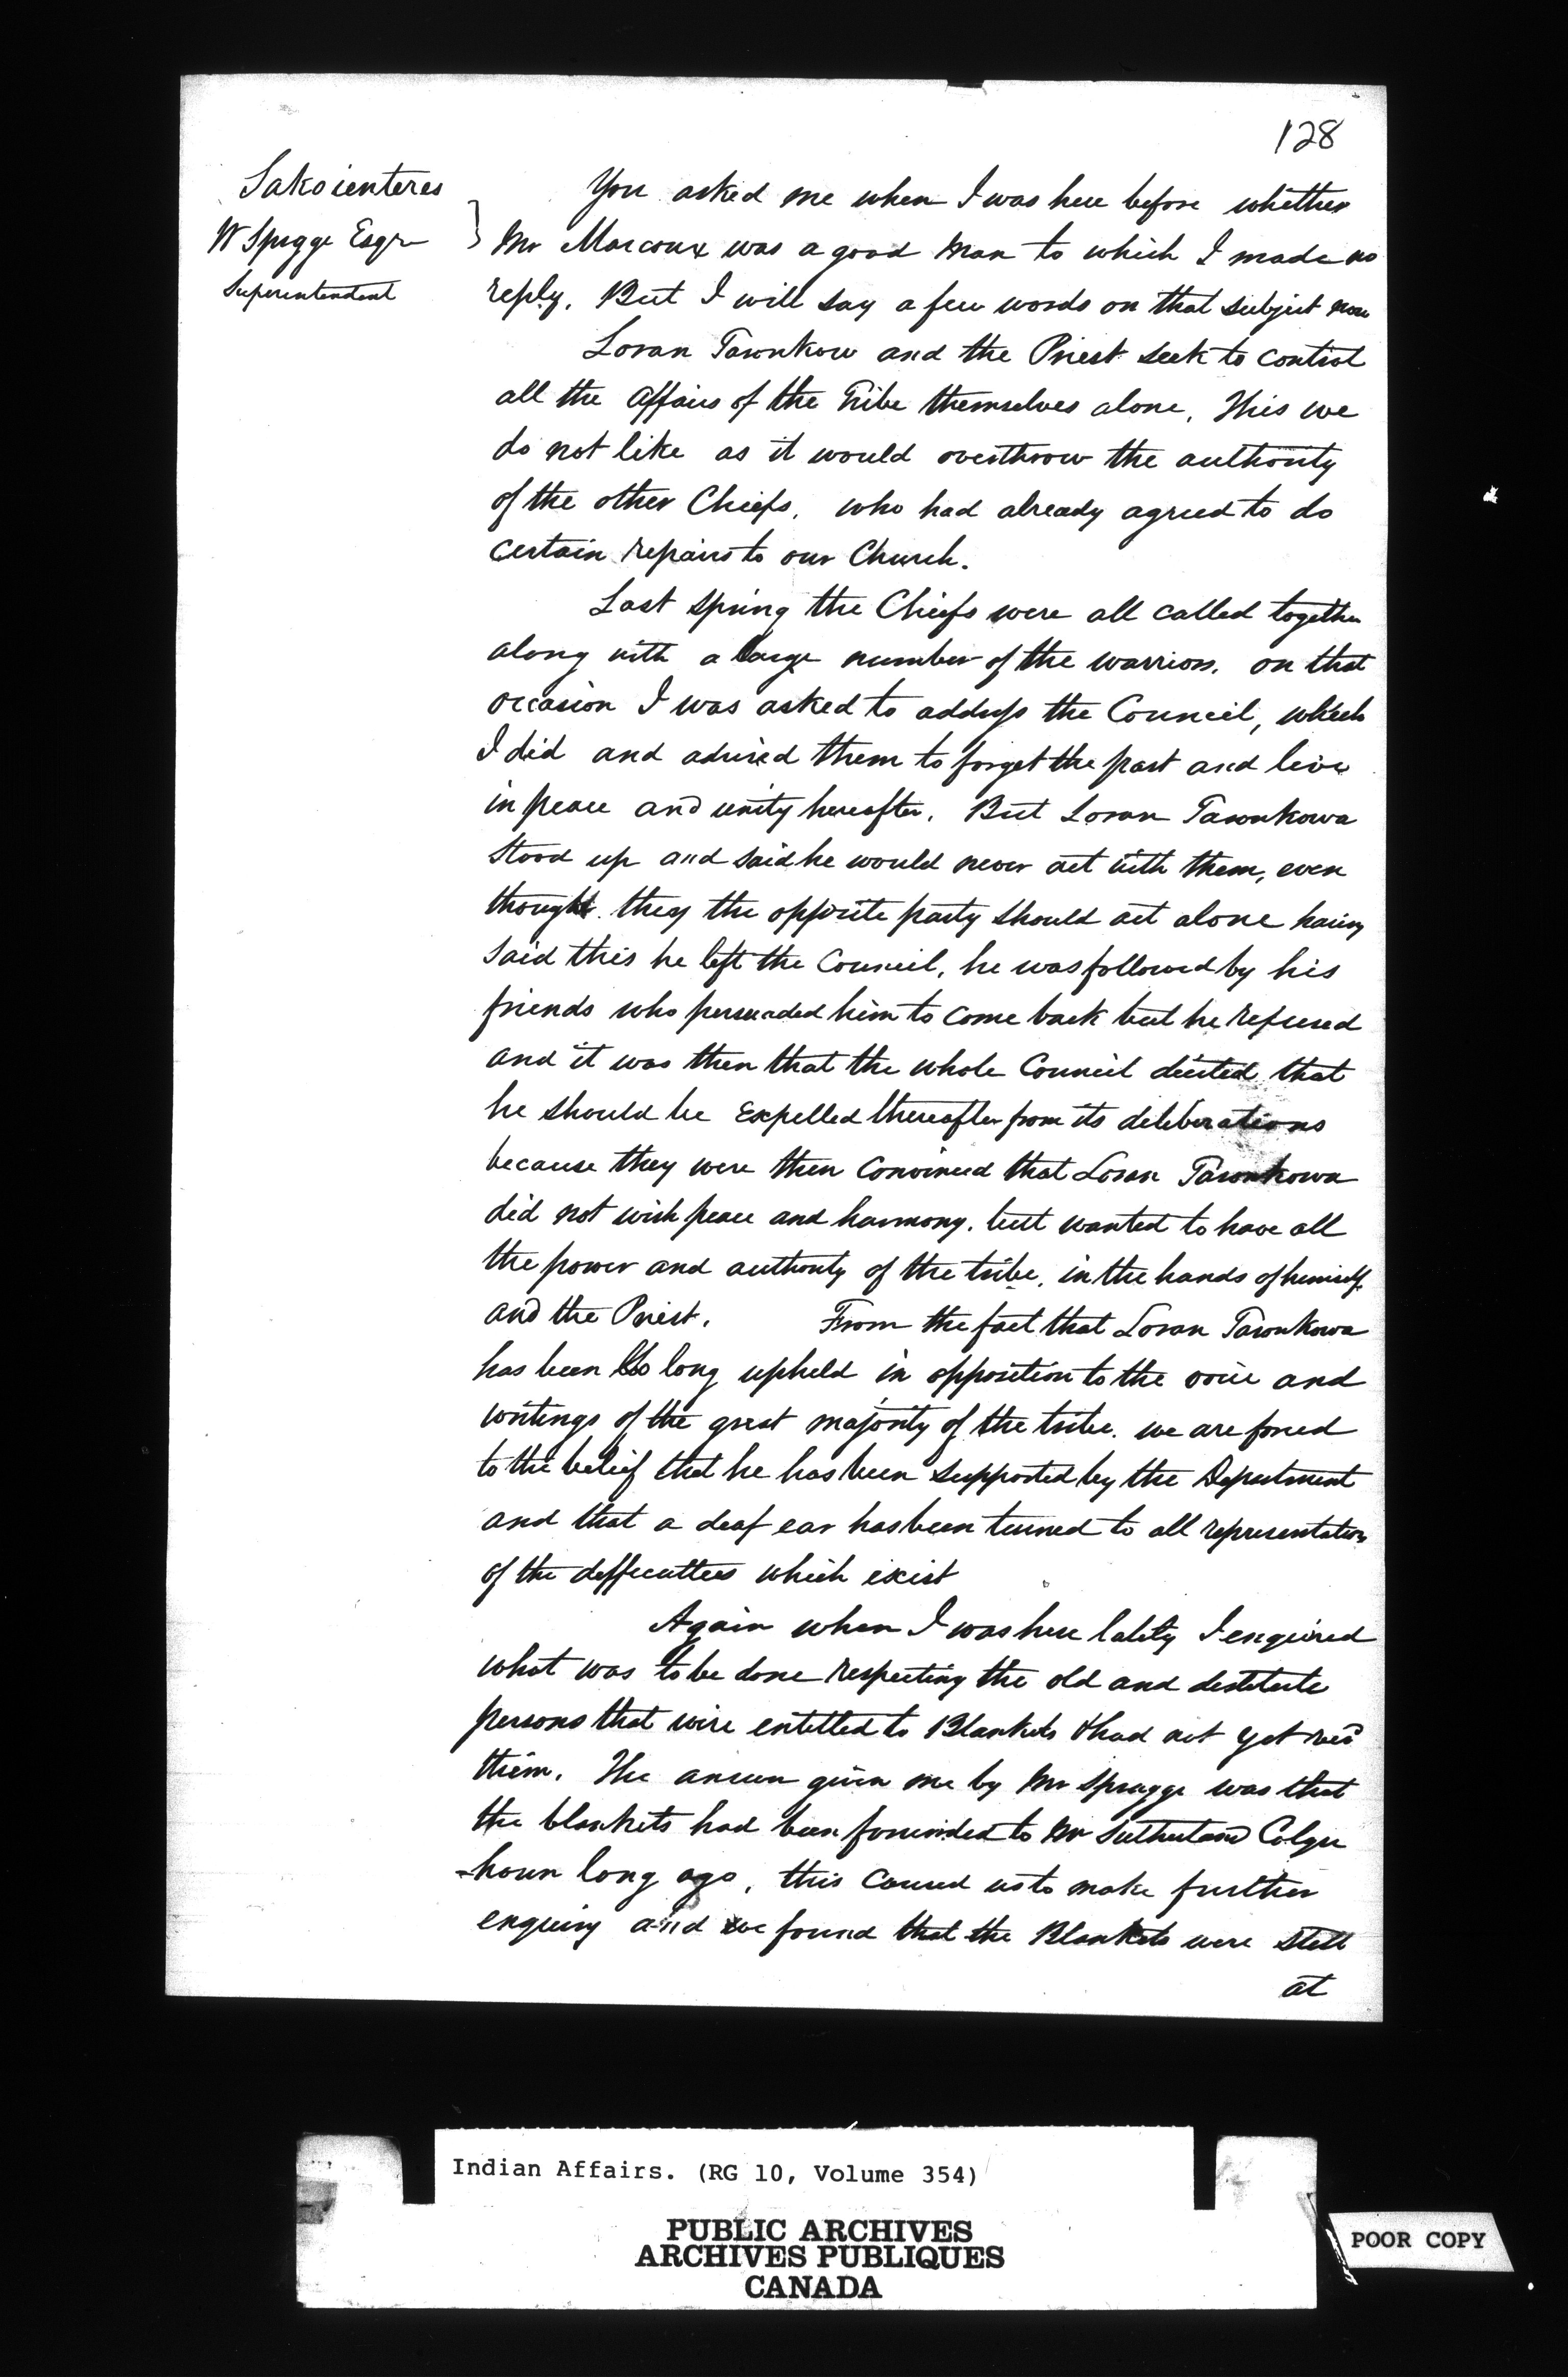 128
Sakoienteres
W Spragge Esqr
Superintendent
You asked me when I was here before whether
Mr Marcoux was a good man to which I made no
reply. But I will say a few words on that subject now
Loran Tawnkow and the Priest seek to control
all the affairs of the Tribe themselves alone, This we
do not like as it would overthrow the authority
of the other Chiefs. who had already agreed to do
certain repairs to our Church.
Last spring the Chiefs were all called together
along with a large number of the warriors. on that
occasion I was asked to address the Council, which
I did and advised them to forget the past and live
in peace and unity hereafter. But Loran Tawnkowa
stood up and said he would never act with them, even
though they the opposite party should act alone having
said this he left the Council, he was followed by his
friends who persuaded him to come back but he refused
and it was then that the whole Council decided that
he should be Expelled thereafter from its deliberations
because they were then convinced that Loran Tawnkowa
did not wish peace and harmony. but wanted to have all
the power and authority of the tribe, in the hands of himself
and the Priest. From the fact that Loran Tawnkowa
has been so long upheld in opposition to the voice and
writings of the great majority of the tribe. we are forced
to the belief that he has been supported by the Department
and that a deaf ear has been turned to all representations
of the difficulties which exist
Again when I was here lately I enquired
what was to be done respecting the old and destitute
persons that were entitled to Blankets & had not yet recd
them. The answer given me by Mr Spragge was that
the blankets had been forwarded to Mr Sutherland Colqu
-houn long ago, this caused us to make further
enquiry and we found that the Blankets were still
at
Indian Affairs. (RG 10, Volume 354)
PUBLIC ARCHIVES
ARCHIVES PUBLIQUES
CANADA
POOR COPY